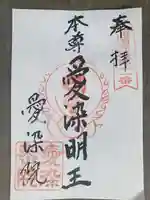 奉拝
本尊
愛染明王
愛染院